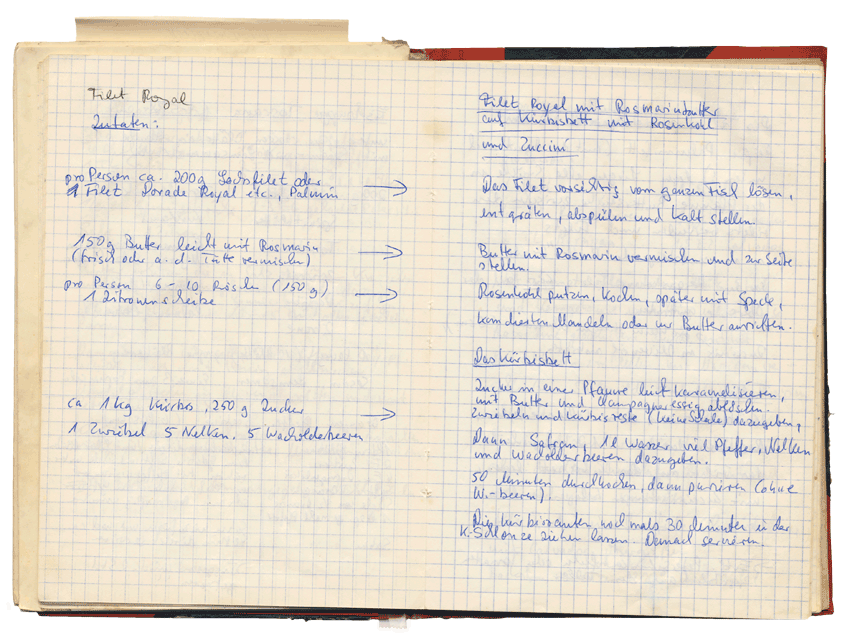 Filet Royal
Zutaten:
pro Person ca. 200g Lachsfilet oder
1 Filet Dorade Royal etc., Palmin
150g Butter leicht mit Rosmarin
(frisch oder a. d. Tüte vermischen)
pro Person 6 - 10 Röschen (150 g)
1 Zitronenscheibe
ca 1 kg Kürbis, 250 g Zucker
1 Zwiebel 5 Nelken, 5 Wacholderbeeren
Filet Royal mit Rosmarinbutter
auf Kürbisbett mit Rosenkohl
und Zuccini
Das Filet vorsichtig vom ganzen Fisch lösen,
entgräten, abspülen und kalt stellen.
Butter mit Rosmarin vermischen und zur Seite
stellen.
Rosenkohl putzen, kochen, später mit Speck,
kandierten Mandeln oder nur Butter anrichten.
Das Kürbisbett
Zucker in einer Pfanne leicht karamelisieren,
mit Butter und Champagneressig ablöschen.
Zwiebeln und Kürbisreste (keine Schale) dazugeben,
Dann Safran, 1l Wasser, viel Pfeffer, Nelken
und Wacholderbeeren dazugeben.
50 Minuten durchkochen, dann pürieren (ohne
W.-beeren).
Die Kürbisrauten nochmals 30 Minuten in der
K.-Schlonze ziehen lassen. Danach servieren.